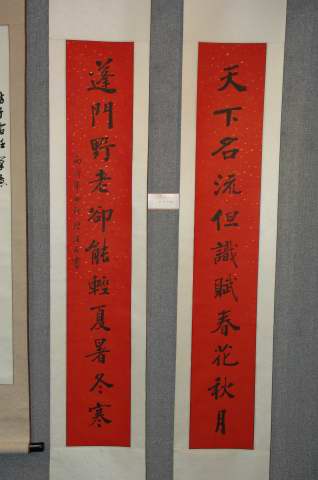 天下名流但識賦春花秋月
蓬門野老卻能輕夏暑冬寒